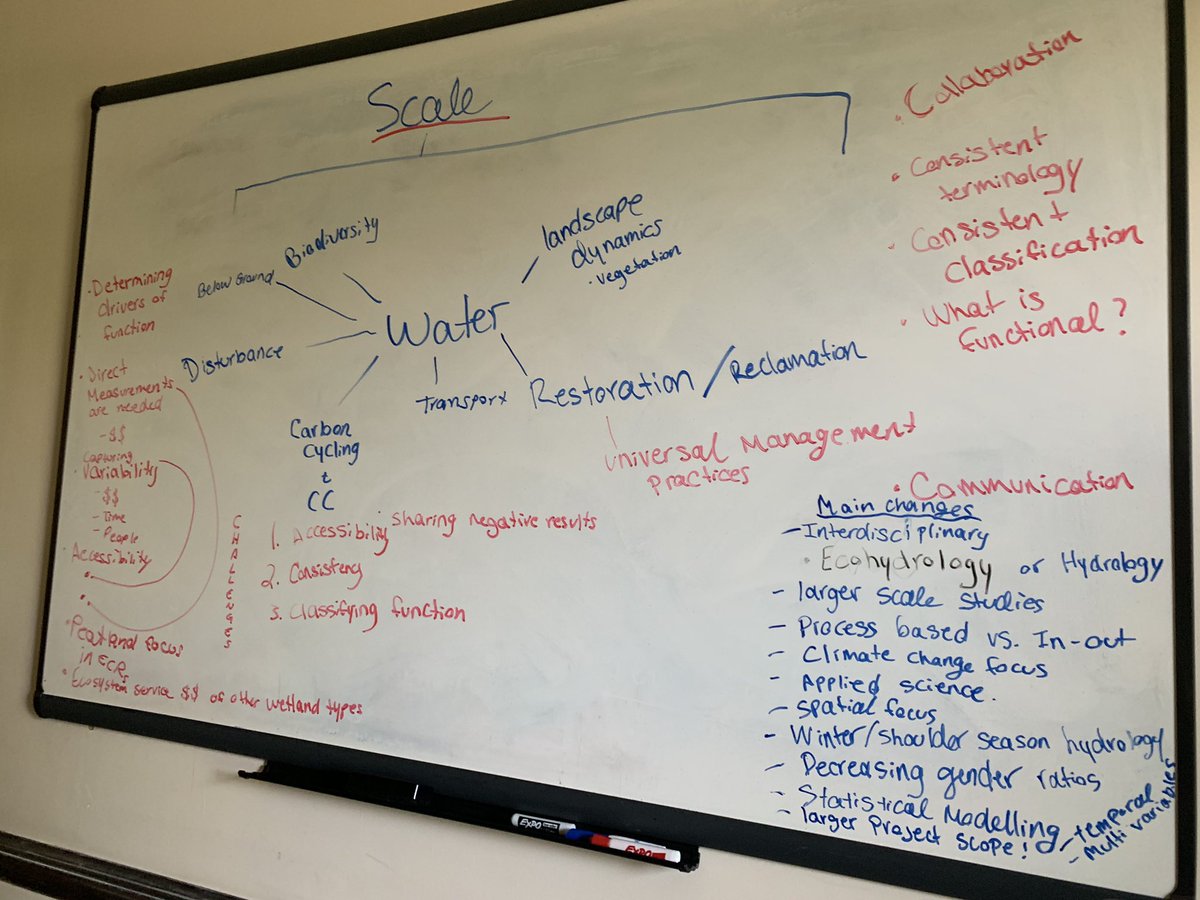 Scale
Biodiversity
Below Ground
Disturbance
Water
landscape
dynamics
• vegetation
Transport
Restoration / Reclamation
Universal Management
Practices
Carbon
Cycling
+
CC
• Determining
drivers of
function
• Direct
Measurements
are needed
- $$
Capturing
• Variability
- $$
- Time
- People
• Accessibility
•
•
• Peatland Focus
in ECRs
• Ecosystem service $$ of other wetland types
CHALLENGES
1. Accessibility • sharing negative results
2. Consisteny
3. Classifying function
• Collaboration
• Consistent
terminology
• Consistent
Classification
• What is
functional?
• Communication
Main changes
- Interdisciplinary
• Ecohydrology or Hydrology
- larger scale studies
- Process based vs. In-out
- Climate change focus
- Applied science.
- spatial focus
- Winter/shoulder season hydrology
- Decreasing gender ratios
- Statistical Modelling
- larger Project scope!
- temporal
- Multi variables
EXPO
EXPO